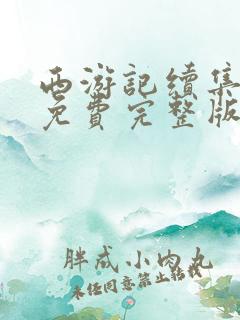 西游記續集
免費完整版
胖成小肉丸
未經同意禁止轉載